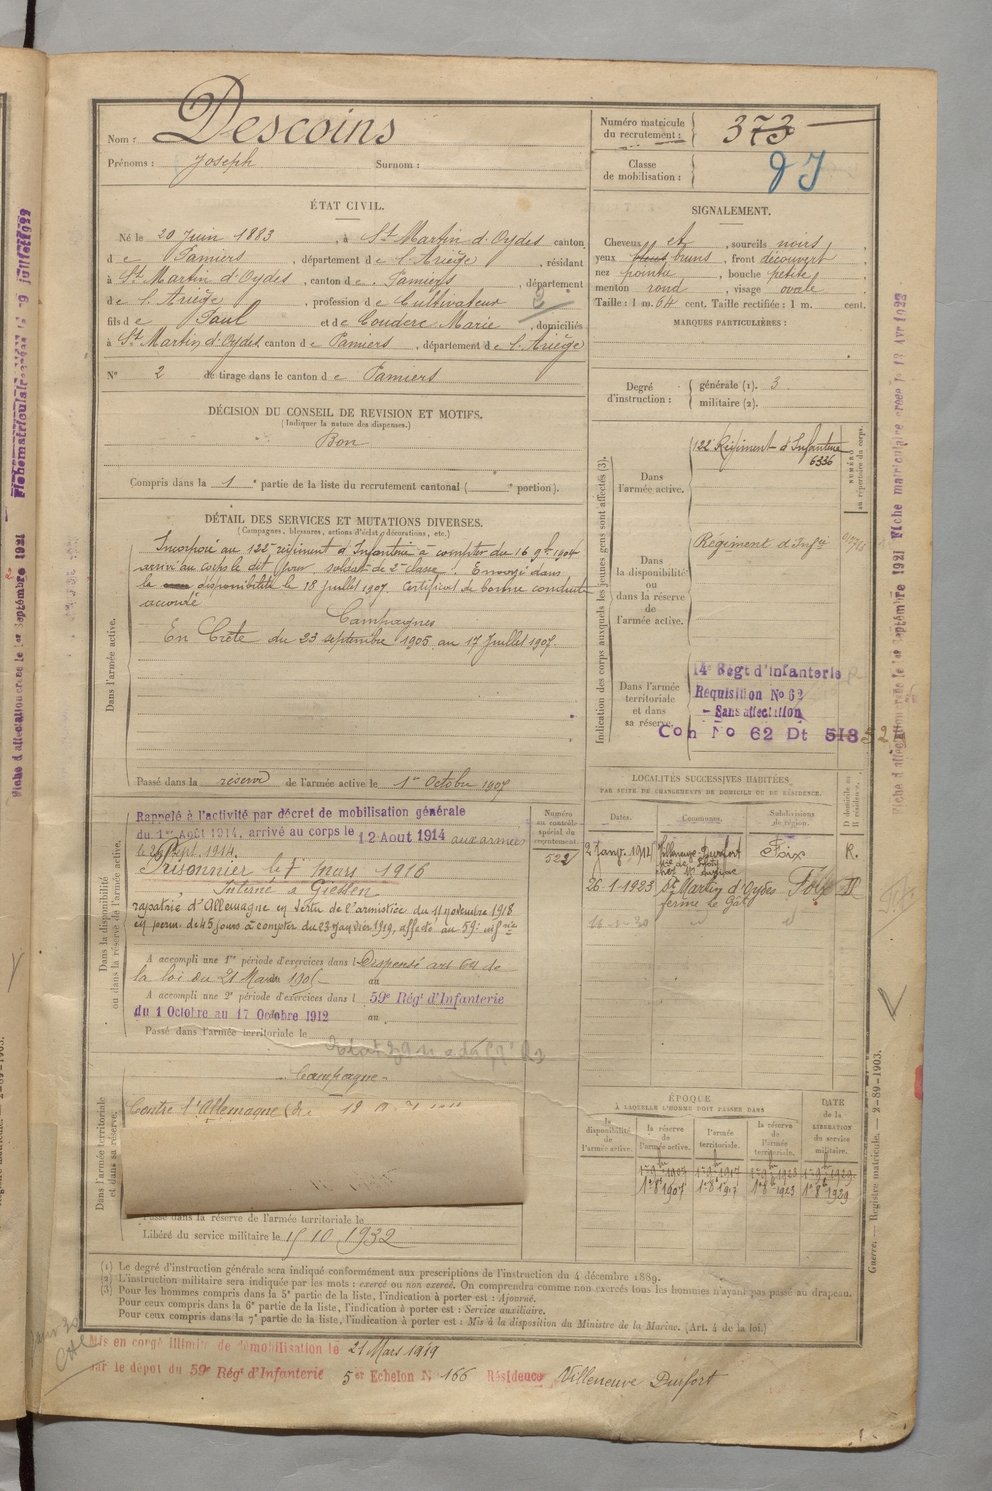 Nom : Descoins
Prénoms : Joseph Surnom :
Numéro matricule du recrutement : 373
Classe de mobilisation :
ÉTAT CIVIL.
Né le 20 Juin 1883, à St Martin d'Oydes canton
de Pamiers, département de l'Ariège, résidant
à St Martin d'Oydes, canton de Pamiers, département
de l'Ariège, profession de Cultivateur 2
fils de Paul et de Couderc Marie, domiciliés
à St Martin d'Oydes canton de Pamiers, département de l'Ariège
N° 2 de tirage dans le canton de Pamiers
SIGNALEMENT.
Cheveux et, sourcils noirs,
yeux bruns, front découvert,
nez pointu, bouche petite,
menton rond, visage ovale.
Taille : 1 m. 64 cent. Taille rectifiée : 1 m. cent.
MARQUES PARTICULIÈRES :
Degré d'instruction : générale (1). 3.
militaire (2).
DÉCISION DU CONSEIL DE REVISION ET MOTIFS.
(Indiquer la nature des dispenses.)
Bon
Compris dans la 1e partie de la liste du recrutement cantonal ( e portion).
DÉTAIL DES SERVICES ET MUTATIONS DIVERSES.
(Campagnes, blessures, actions d'éclat, décorations, etc.)
Dans l'armée active.
Incorporé au 122e régiment d'Infanterie à compter du 16 9bre 1904
arrivé au corps le dit jour, soldat de 2e classe. Envoyé dans
la disponibilité le 18 Juillet 1907. Certificat de bonne conduite
accordé
Campagnes
En Crète du 23 septembre 1906 au 17 Juillet 1907.
Passé dans la réserve de l'armée active le 1er Octobre 1907
Indication des corps auxquels les jeunes gens sont affectés (3).
NUMÉRO au répertoire du corps.
Dans l'armée active.
122 Régiment d'Infanterie
6336
Dans la disponibilité ou dans la réserve de l'armée active.
Régiment d'Infrie
Dans l'armée territoriale et dans sa réserve.
14e Régt d'infanterie
Requisition No 62
- Sans affectation
Con No 62 Dt 513
Dans la disponibilité ou dans la réserve de l'armée active.
Rappelé à l'activité par décret de mobilisation générale
du 1er Août 1914, arrivé au corps le 12 Aout 1914 aux armées
le 26 Sept. 1914.
Prisonnier le 1er mars 1916
Interné à Giessen
rapatrié d'Allemagne en vertu de l'armistice du 11 novembre 1918
en perm. de 45 jours à compter du 23 janvier 1919, affecté au 59e infrie
A accompli une 1re période d'exercices dans l Dispensé art
la loi du 21 Mars 1905 au
A accompli une 2e période d'exercices dans l 59e Régt d'Infanterie
du 1 Octobre au 17 Octobre 1912 au
Passé dans l'armée territoriale le
Numéro au contrôle spécial du recrutement.
522
LOCALITÉS SUCCESSIVES HABITÉES
PAR SUITE DE CHANGEMENTS DE DOMICILE OU DE RÉSIDENCE.
Dates. Communes. Subdivisions de région. D domicile ou R résidence.
2 Janv. 1914 Villeneuve-Durfort Foix R.
26-1-1923 St Martin d'Oydes Foix D
ferme le
Campagne
Dans l'armée territoriale et dans sa réserve.
Contre l'Allemagne
Passé dans la réserve de l'armée territoriale le
Libéré du service militaire le 15 10 1932
ÉPOQUE
À LAQUELLE L'HOMME DOIT PASSER DANS
DATE de la LIBÉRATION du service militaire.
la disponibilité de l'armée active.
la réserve de l'armée active.
l'armée territoriale.
la réserve de l'armée territoriale.
1er 8bre 1907 1er 8bre 1917 1er 8bre 1923 1er 8bre 1929
(1) Le degré d'instruction générale sera indiqué conformément aux prescriptions de l'instruction du 4 décembre 1889.
(2) L'instruction militaire sera indiquée par les mots : exercé ou non exercé. On comprendra comme non exercés tous les hommes n'ayant pas passé au drapeau.
(3) Pour les hommes compris dans la 5e partie de la liste, l'indication à porter est : Ajourné.
Pour ceux compris dans la 6e partie de la liste, l'indication à porter est : Service auxiliaire.
Pour ceux compris dans la 7e partie de la liste, l'indication à porter est : Mis à la disposition du Ministre de la Marine. (Art. 4 de la loi.)
Mis en congé illimité de démobilisation le 21 Mars 1919
par le dépot du 59e Régt d'Infanterie 5e Echelon N° 166 Résidence Villeneuve Durfort
Guerre. — Registre matricule. — 2-89-1903.